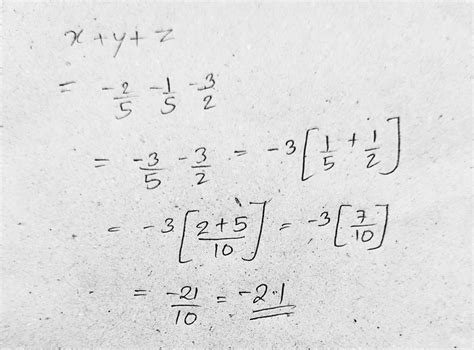 x+y+z
= -2/5 -1/5 -3/2
= -3/5 -3/2 = -3[1/5 + 1/2]
= -3[(2+5)/10] = -3[7/10]
= -21/10 = -2.1